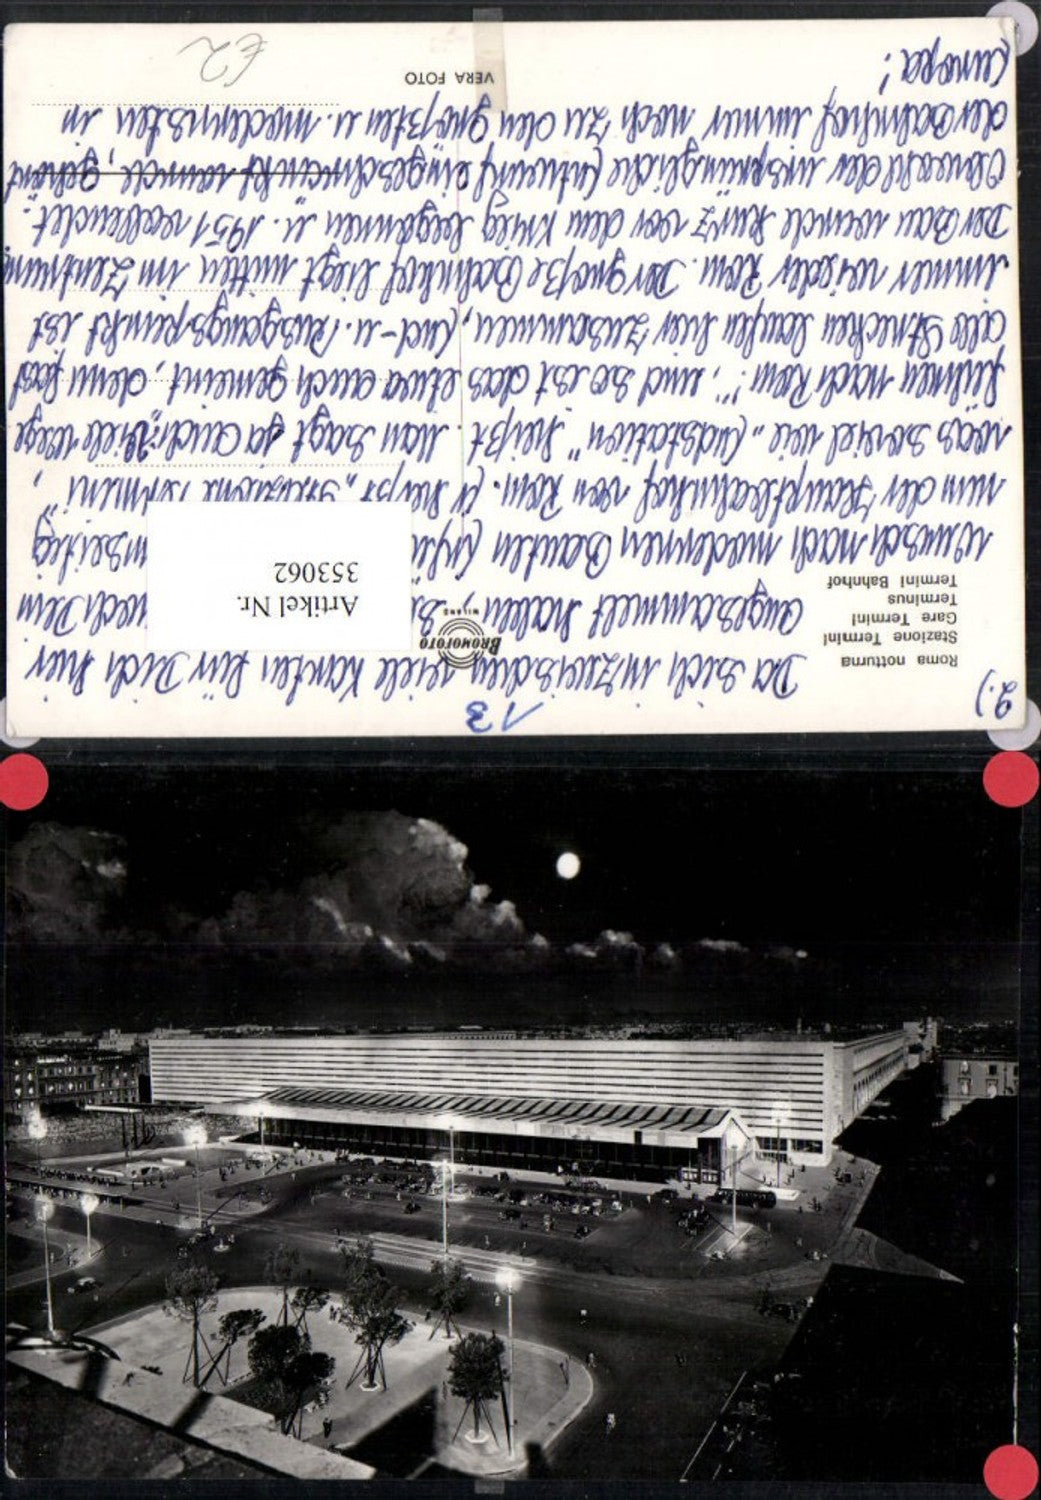 2.)
13
Roma notturna
Stazione Termini
Gare Termini
Terminus
Termini Bahnhof
BROMOFOTO
MILANO
VERA FOTO
€2
Artikel Nr.
353062
Da sich inzwischen viele Karten für Dich hier
angesammelt haben, Dein
Wunsch nach modernen Bauten
nun der Hauptbahnhof von Rom. Er heißt „Stazione Termini",
was soviel wie „Endstation" heißt. Man sagt ja auch: „Viele Wege
führen nach Rom!", und so ist das etwa auch gemeint, denn fast
alle Strecken laufen hier zusammen, End- u. Ausgangspunkt ist
immer wieder Rom. Der große Bahnhof liegt mitten im Zentrum.
Der Bau wurde kurz vor dem Krieg begonnen u. 1951 vollendet.
Obwohl der ursprüngliche Entwurf eingeschränkt wurde, gehört
der Bahnhof immer noch zu den größten u. modernsten in
Europa!